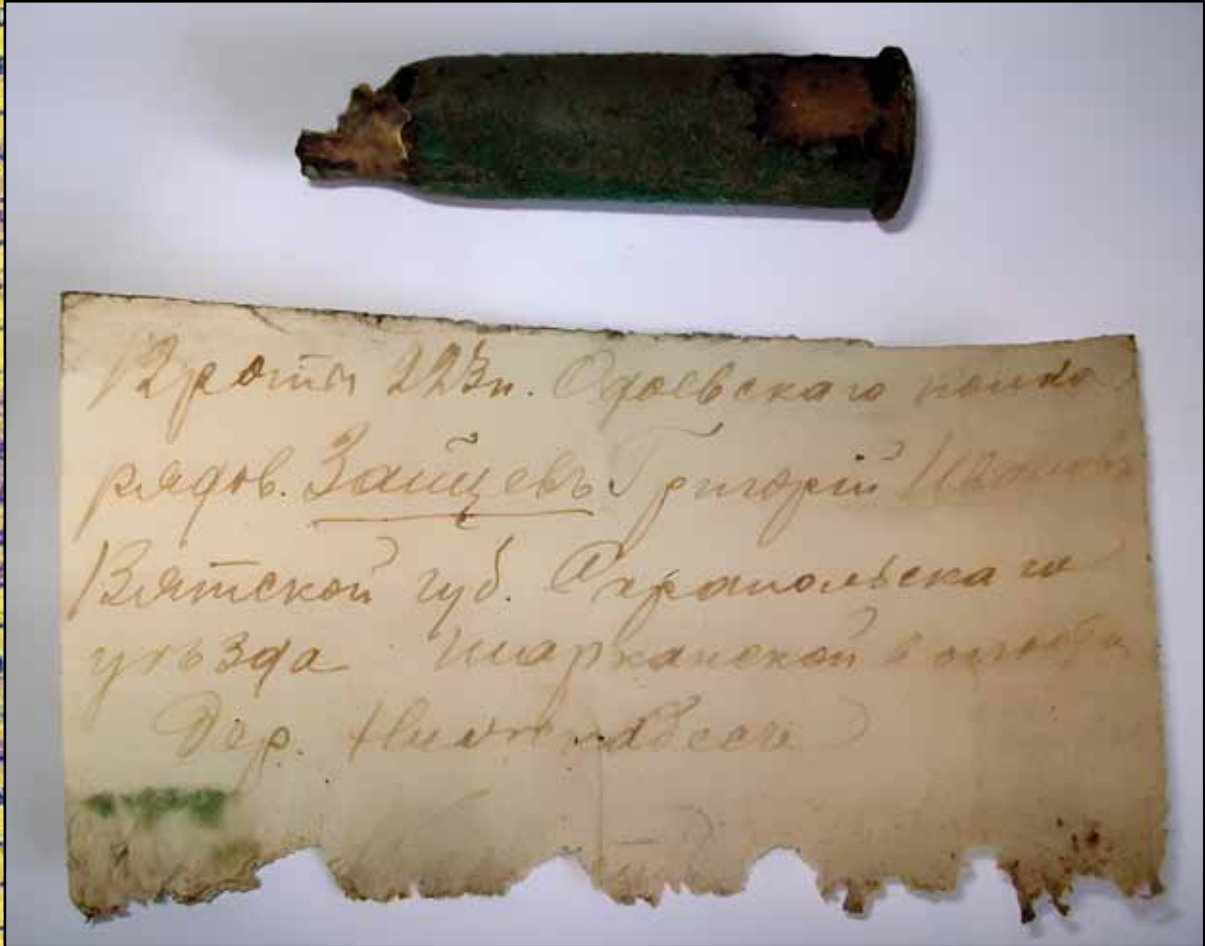 12 роты 223 п. Одоевскаго полка
рядов. Зайцевъ Григорій Иванов
Вятской губ. Сарапольскаго
уѣзда Шарканской волости
Дер.